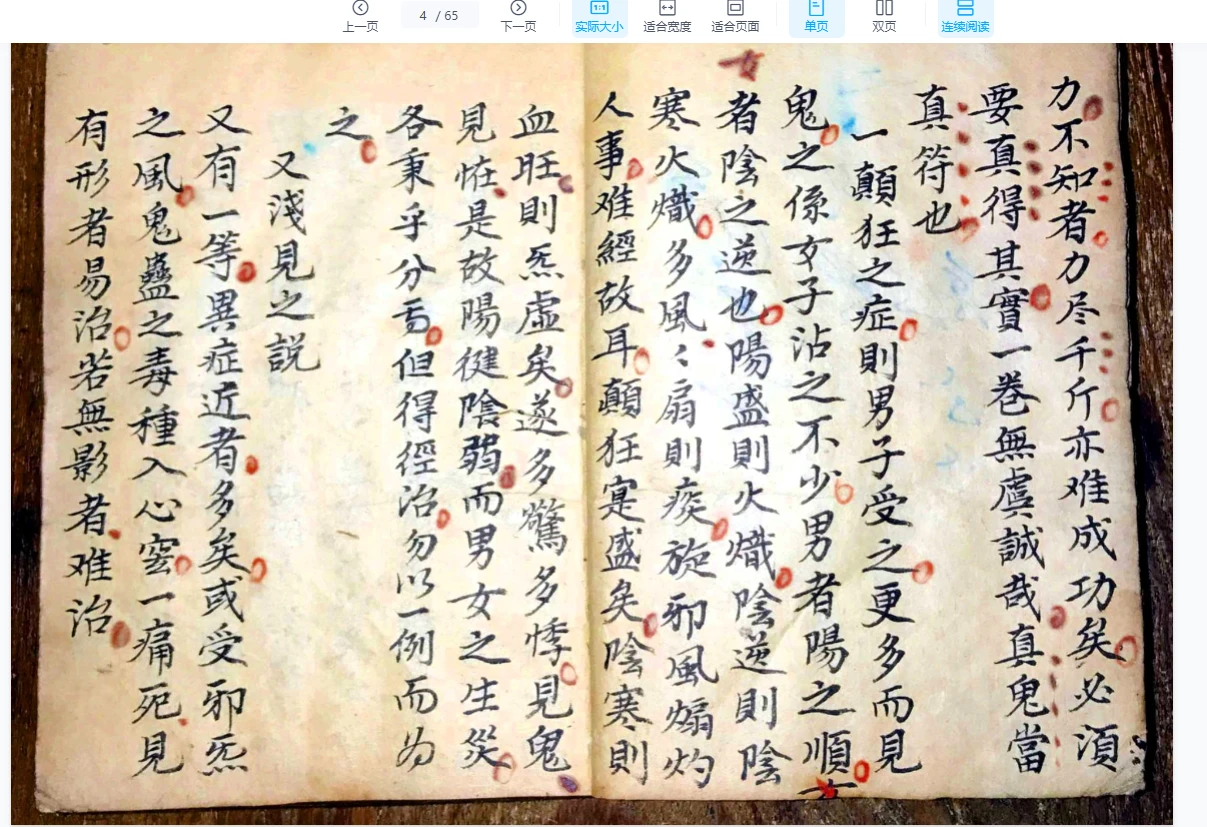 上一页
4 / 65
下一页
1:1
实际大小
适合宽度
适合页面
单页
双页
连续阅读
力不知者力尽千斤亦难成功矣必須
要真得其實一巻無虞誠哉真鬼當
真符也
一顛狂之症則男子受之更多而見
鬼之係女子沾之不少男者陽之順
女
者陰之逆也陽盛則火熾陰逆則陰
寒火熾多風〻扇則痰旋邪風煽灼
人事难經故耳顛狂寔盛矣陰寒則
血旺則炁虛矣遂多驚多悸見鬼
見恠是故陽健陰弱而男女之生災
各秉乎分焉但得經治勿以一例而为
之
又淺見之説
又有一等異症近者多矣或受邪炁
之風鬼蠱之毒種入心窍一痛死見
有形者易治若無影者难治